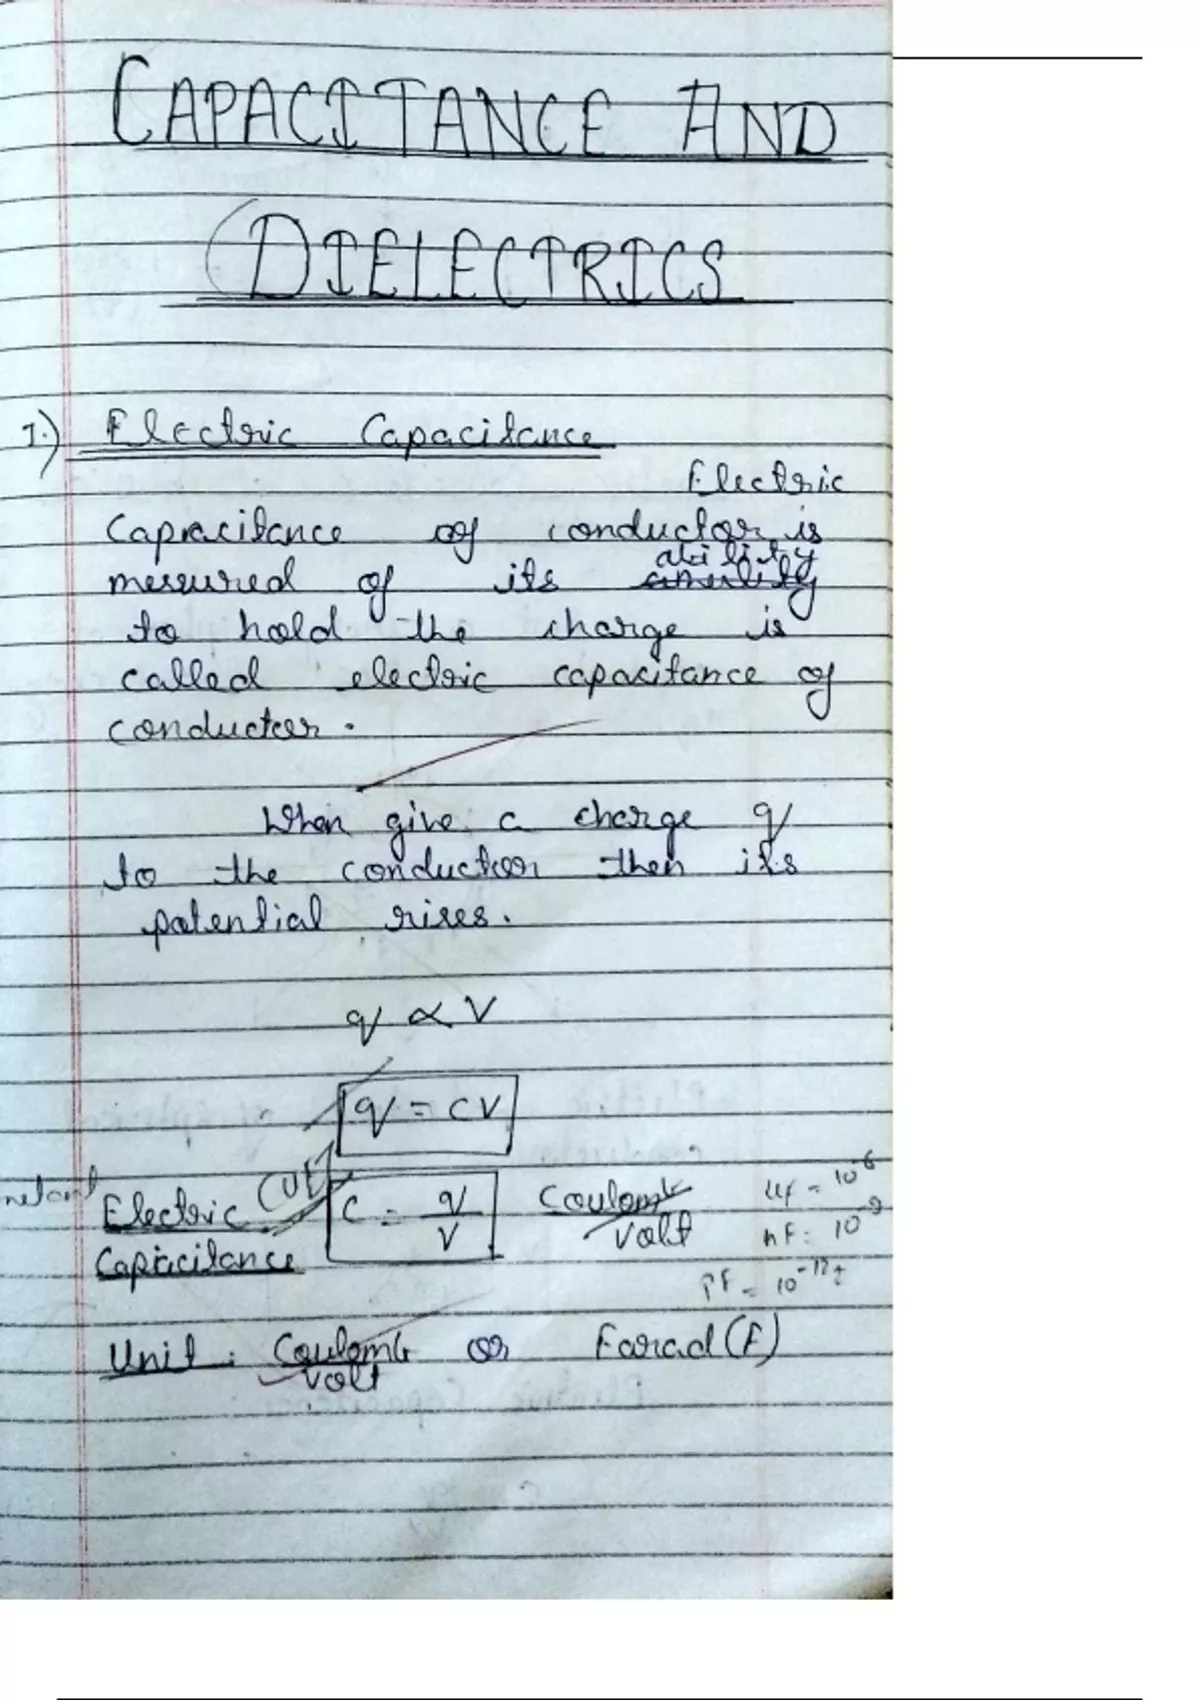 CAPACITANCE AND
DIELECTRICS
1.) Electric Capacitance
Electric
Capacitance of conductor is
mesured of its ability
to hold the charge is
called electric capacitance of
conductor.
When give a charge q
to the conductor then its
potential rises.
q ∝ V
q = CV
Electric Capacitance
C = q/V
Coulomb/Volt
μf = 10⁻⁶
nF = 10⁻⁹
PF = 10⁻¹²
Unit: Coulomb/Volt or Farad (F)